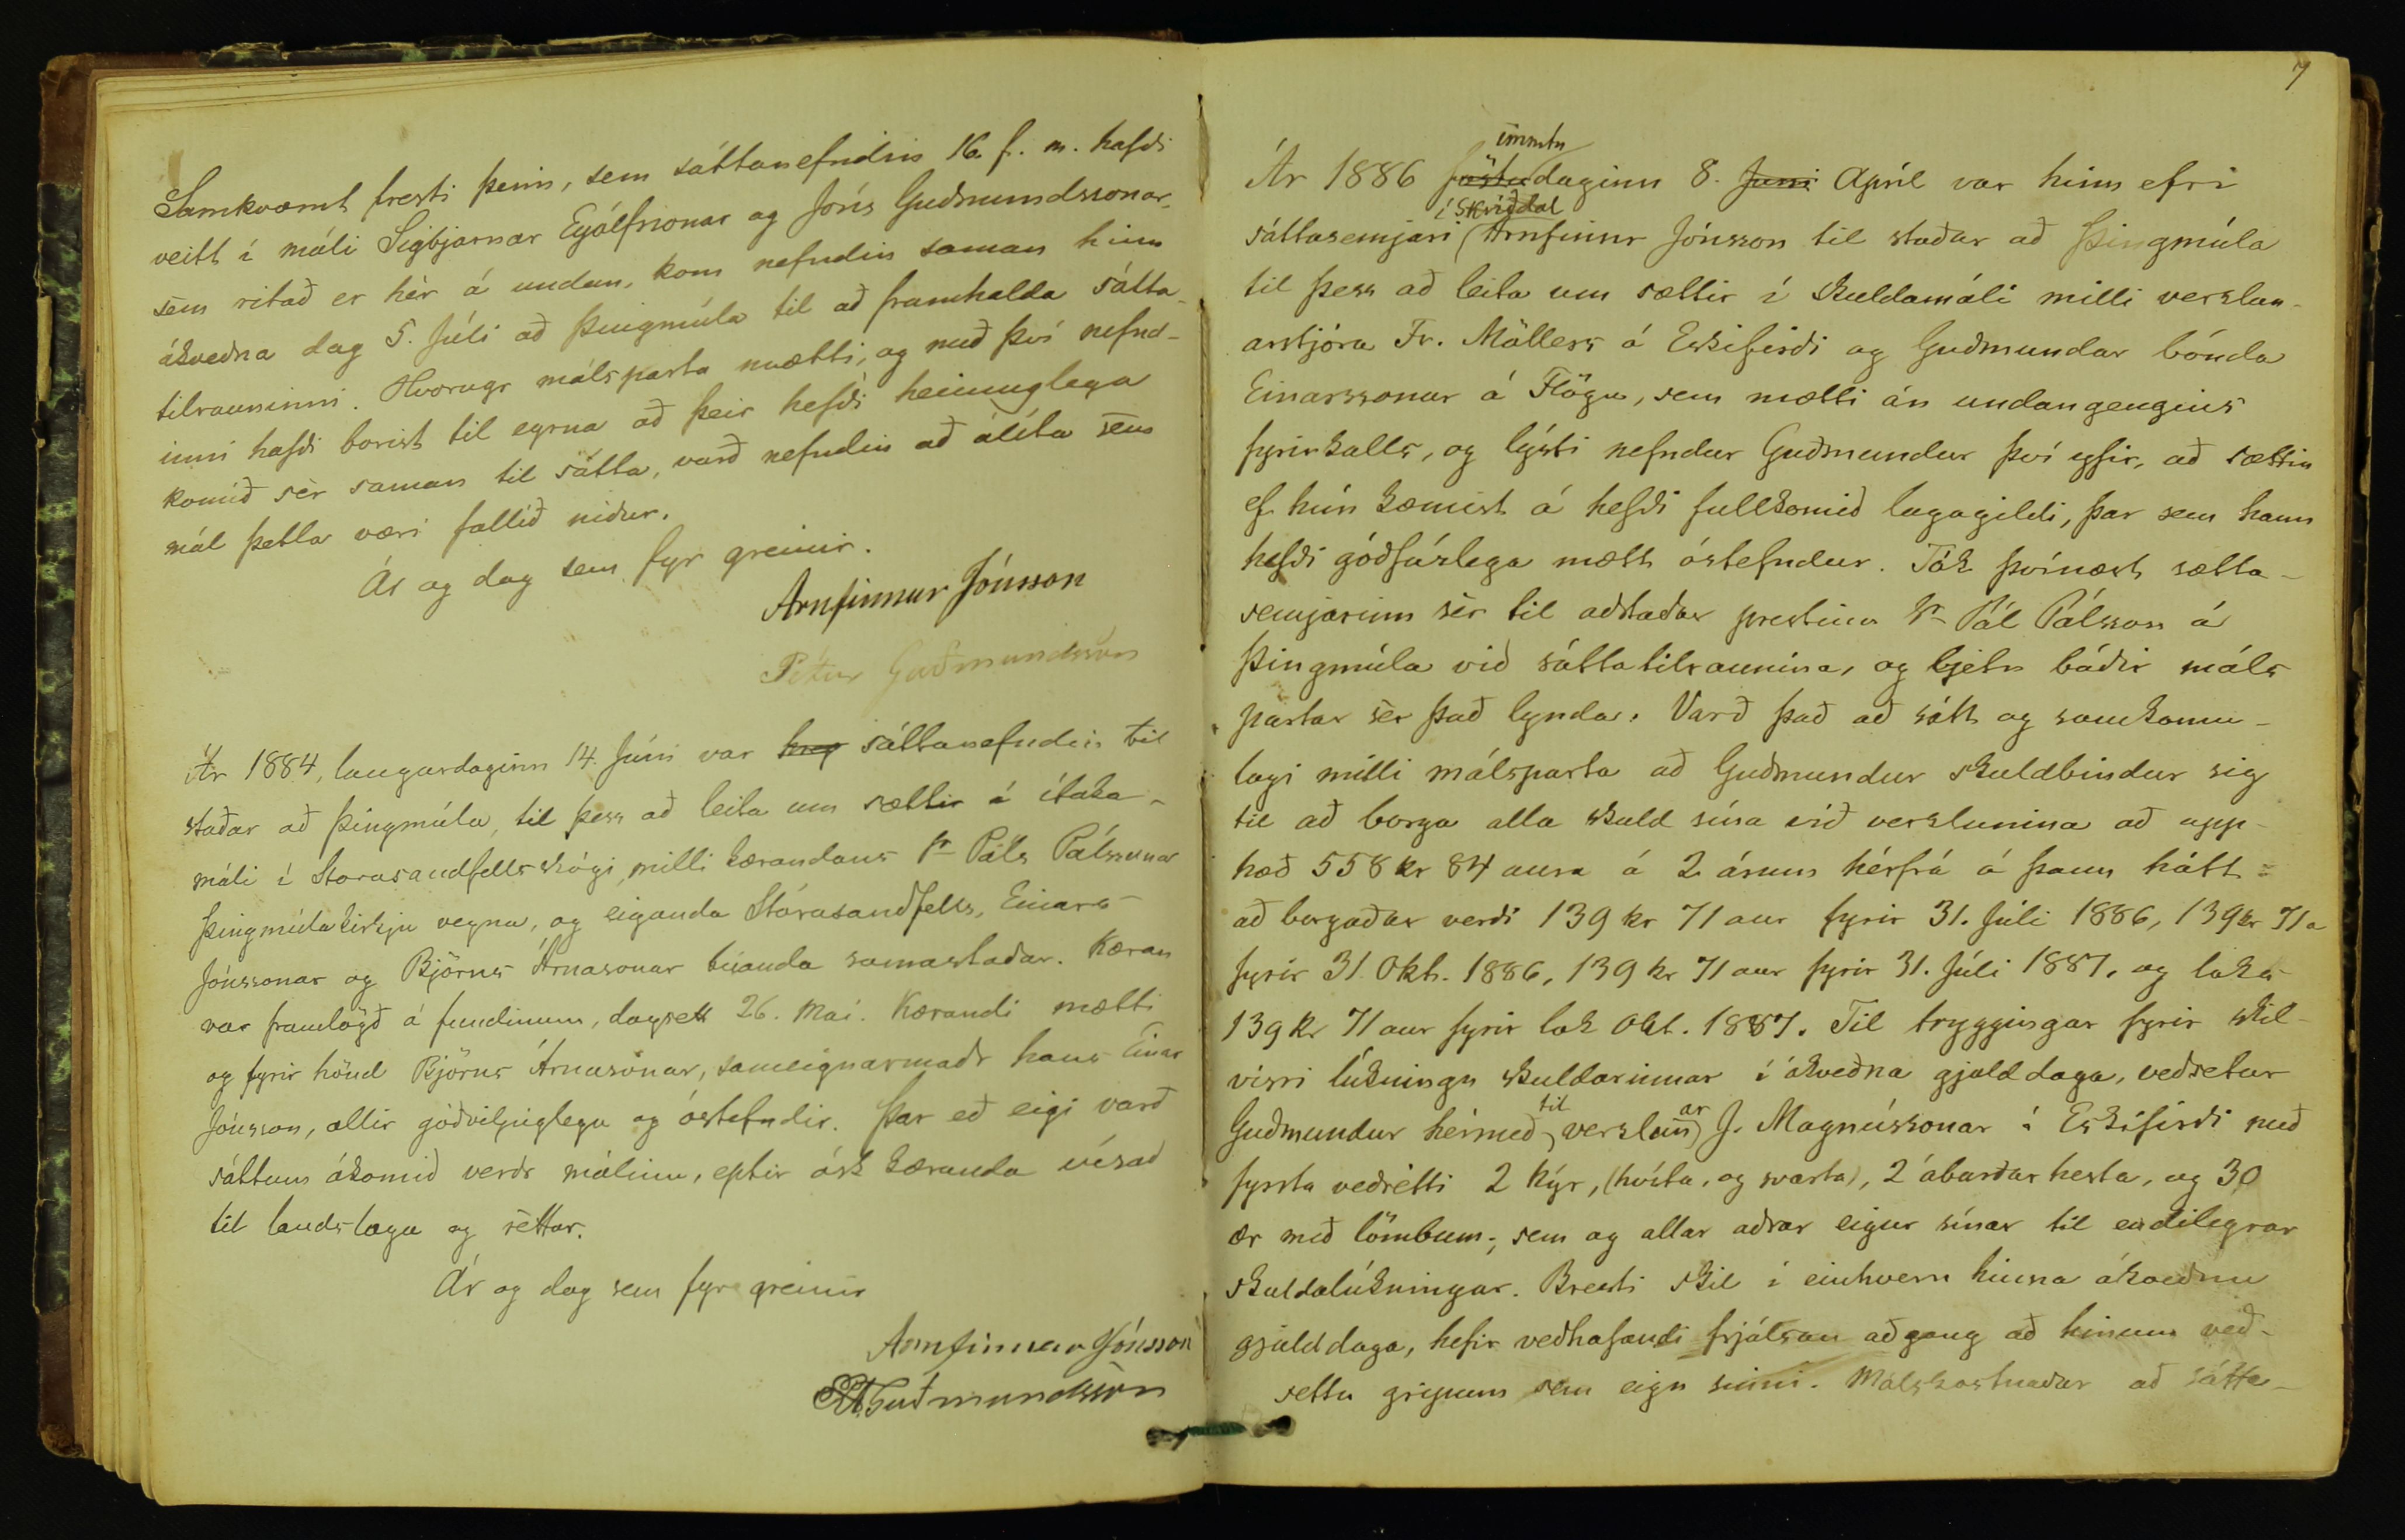 Samkvæmt fresti þeim, sem sáttanefndin 16. f. m. hafði
veitt í máli Sigbjarnar Eyólfssonar og Jóns Guðmundssonar
sem ritað er hèr á undan, kom nefndin saman hinn
ákveðna dag 5. Júli að Þingmúla til að framhalda sátta-
tilrauninni. Hvorugr málsparta mætti, og með því nefnd-
inni hafði borist til eyrna að þeir hefði heimuglega
komið sèr saman til sátta, varð nefndin að álíta sem
mál þetta væri fallið niður.
Ár og dag sem fyr greinir.
Arnfinnur Jónsson
Pétur Guðmundsson
Ár 1884, laugardaginn 14. Júni var hrep sáttanefndin til
staðar að Þingmúla, til þess að leita um sættir í ítaka-
máli í Stórasandfellsskógi, milli kærandans sr Páls Pálssonar
Þingmúlakirkju vegna, og eiganda Stórasandfells, Einars
Jónssonar og Björns Árnasonar búanda samastaðar. Kæran
var framlögð á fundinum, dagsett 26. Mai. Kærandi mætti
og fyrir hönd Björns Árnasonar, sameignarmaðr hans Einar
Jónsson, allir góðviljuglega og óstefndir. Þar eð eigi varð
sáttum ákomið verðr málinu, eptir ósk kæranda vísað
til landslaga og réttar.
Ár og dag sem fyr greinir
Arnfinnur Jónsson
P Guðmundsson
7
immtu
Ár 1886 föstudaginn 8. Juni Apríl var hinn efri
í Skriðdal
sáttasemjari Arnfinnr Jónsson til staðar að Þingmúla
til þess að leita um sættir í skuldamáli milli verslun-
arstjóra Fr. Möllers á Eskifirði og Guðmundar bónda
Einarssonar á Flögu, sem mætti án undangengins
fyrirkalls, og lýsti nefndur Guðmundur því yfir, að sættin
ef hún kæmist á hefði fullkomið lagagildi, þar sem hann
hefði góðfúslega mætt óstefndur. Tók þvínæst sætta-
semjarinn sèr til aðstoðar prestinn sr Pál Pálsson á
Þingmúla við sáttatilraunina, og ljetu báðir máls
partar sèr það lynda. Varð það að sátt og samkomu-
lagi milli málsparta að Guðmundur skuldbindur sig
til að borga alla skuld sína við verslunina að upp-
hæð 558 kr 84 aura á 2 árum hérfrá á þann hátt:
að borgaðar verði 139 kr 71 aur fyrir 31. Júli 1886, 139 kr 71 a
fyrir 31. Okt. 1886, 139 kr 71 aur fyrir 31. Júli 1887, og loks
139 kr 71 aur fyrir lok Okt. 1887. Til tryggingar fyrir skil-
vísri lúkningu skuldarinnar í ákveðna gjalddaga, veðsetur
til ar
Guðmundur hérmeð verslun J. Magnússonar á Eskifirði með
fyrsta veðrétti 2 kýr, (hvíta, og svarta), 2 áburðarhesta, og 30
ær með lömbum; sem og allar aðrar eigur sínar til endilegrar
skuldalúkningar. Bresti skil í einhvern hinna ákveðnu
gjalddaga, hefir veðhafandi frjálsan aðgang að hinum veð-
settu gripum sem eign sinni. Málskostnaðar að sátta-